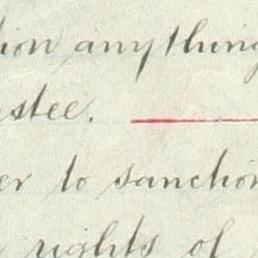 tion anything
stee.
er to sanction
rights of